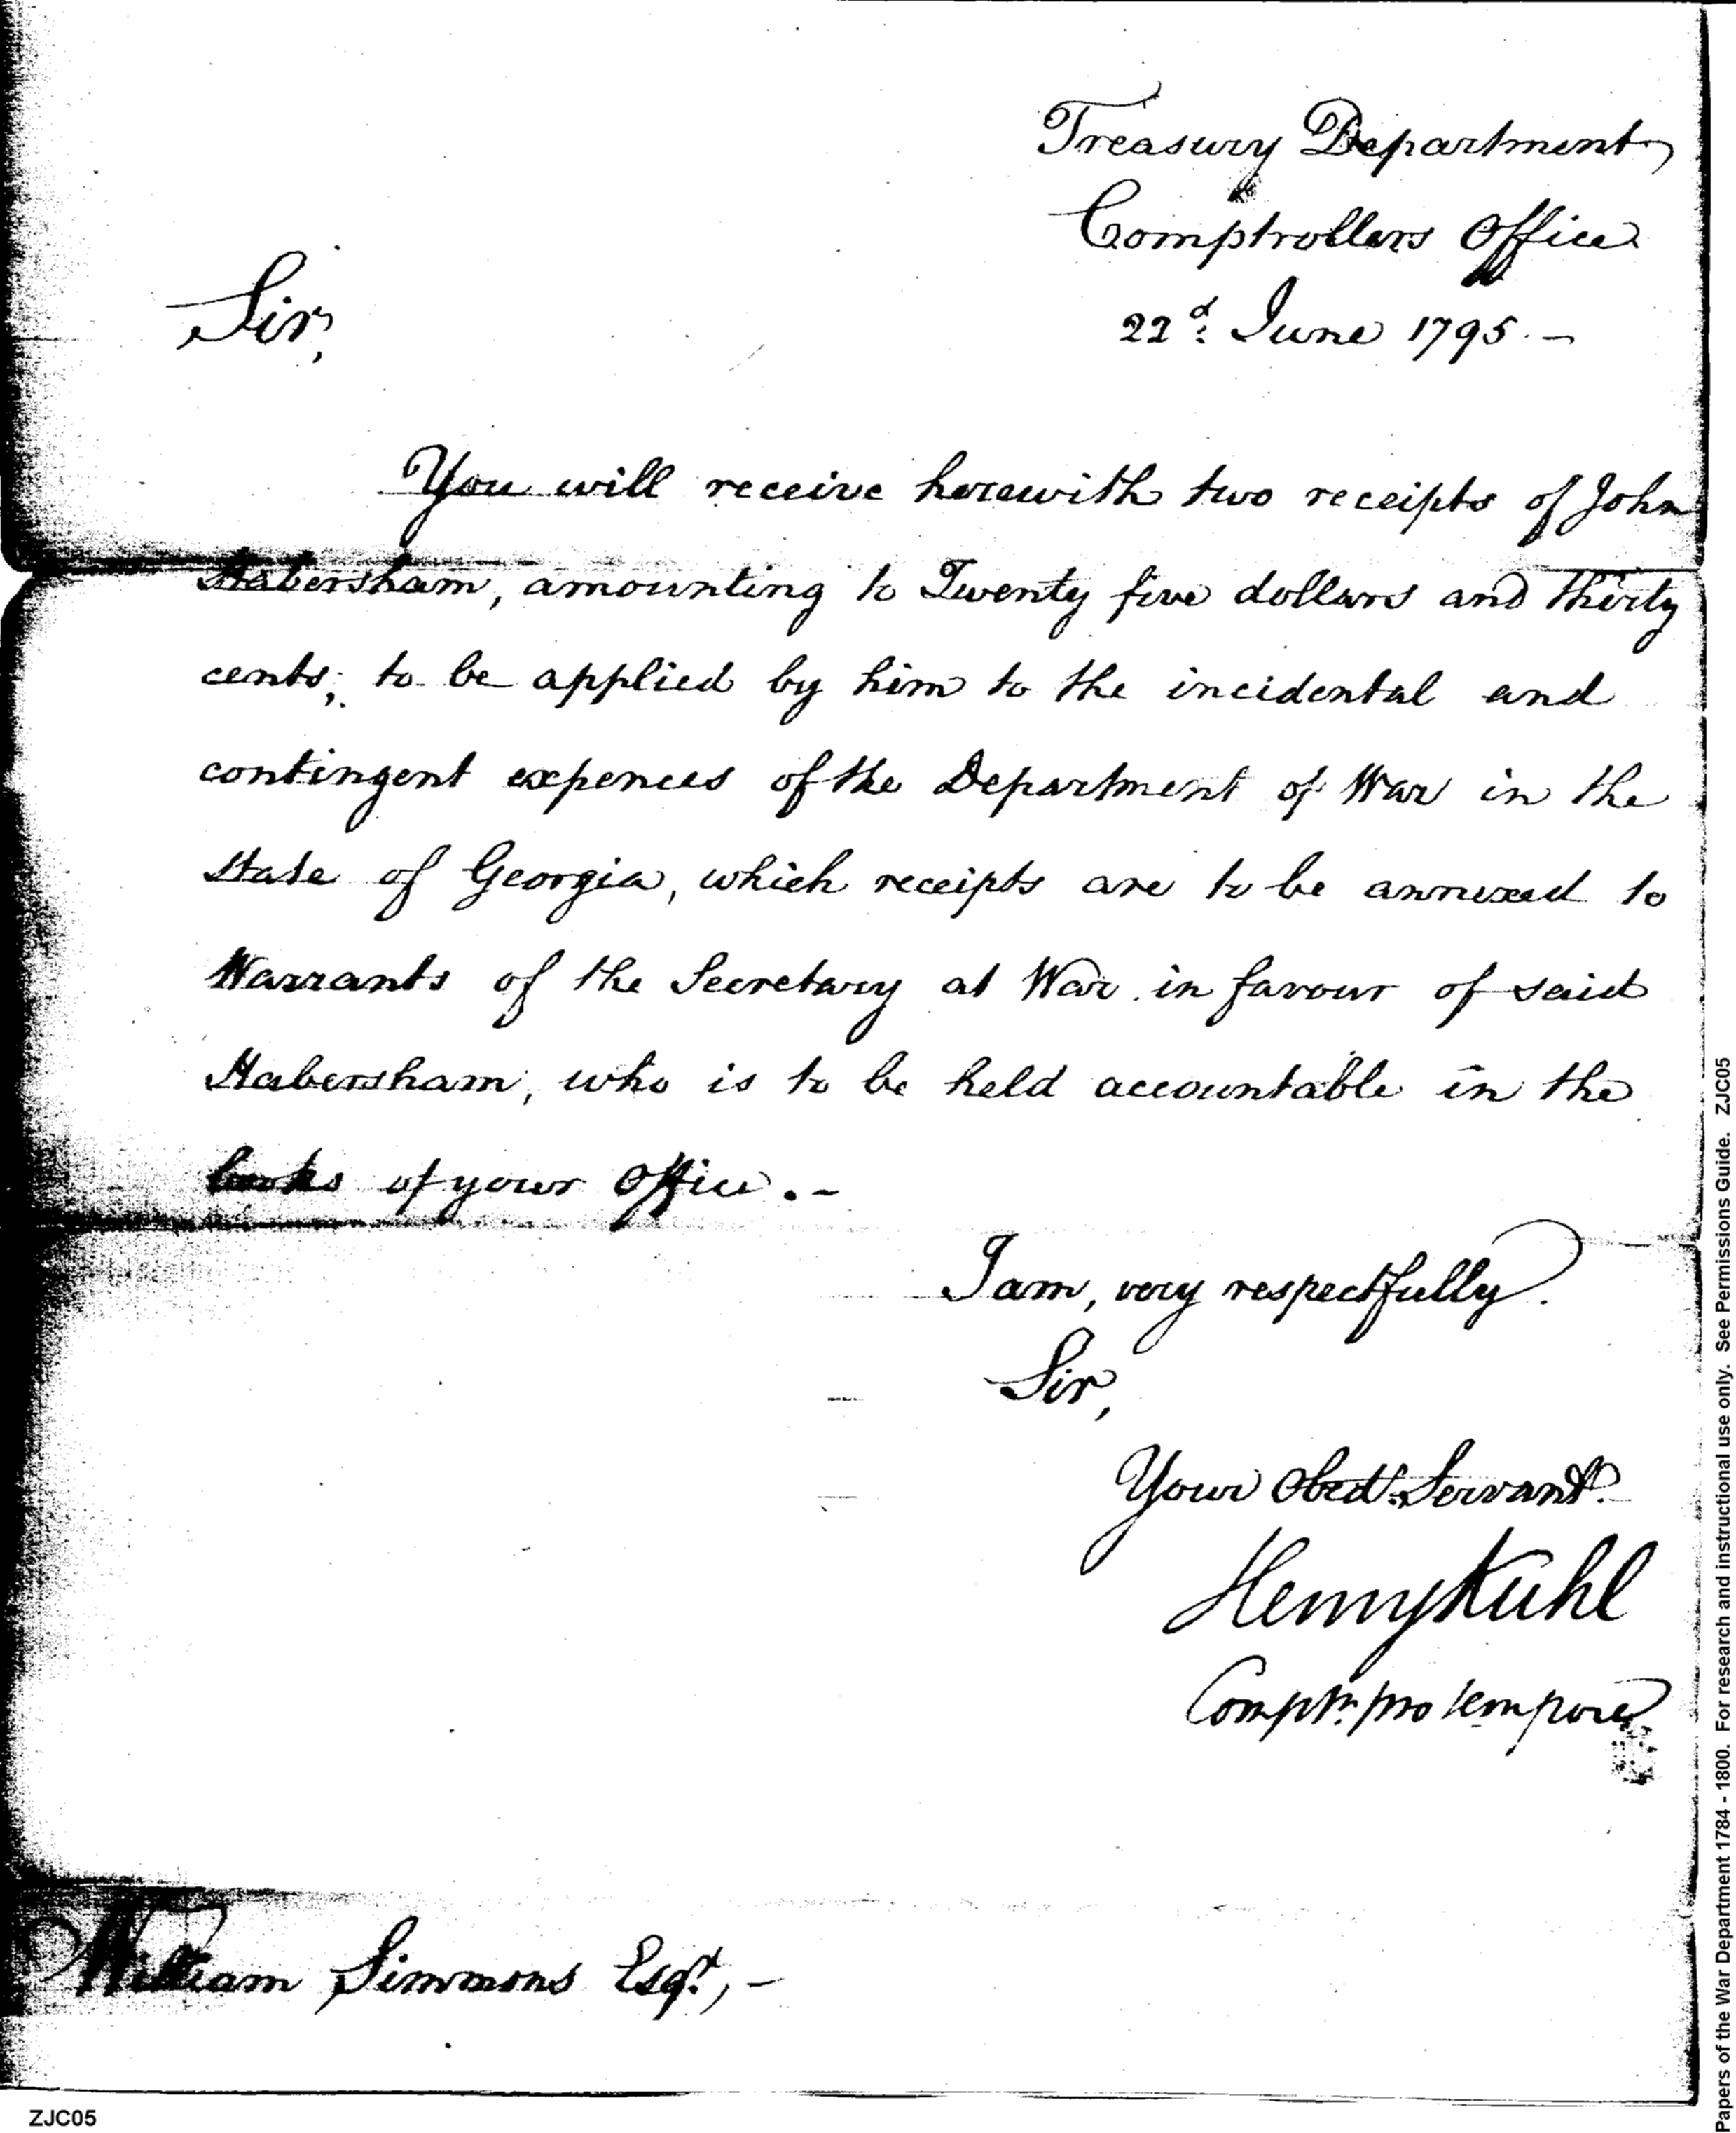 Treasury Department
Comptrollers Office
22d: June 1795. –
Sir,
You will receive herewith two receipts of John
Habersham, amounting to Twenty five dollars and thirty
cents; to be applied by him to the incidental and
contingent expences of the Department of War in the
State of Georgia, which receipts are to be annexed to
Warrants of the Secretary at War in favour of said
Habersham, who is to be held accountable in the
books of your Office. –
I am, very respectfully.
Sir,
Your Obedt. Servant.
Henry Kuhl
Comptr. pro tempore
William Simmons Esqr., –
ZJC05
Papers of the War Department 1784 - 1800. For research and instructional use only. See Permissions Guide. ZJC05